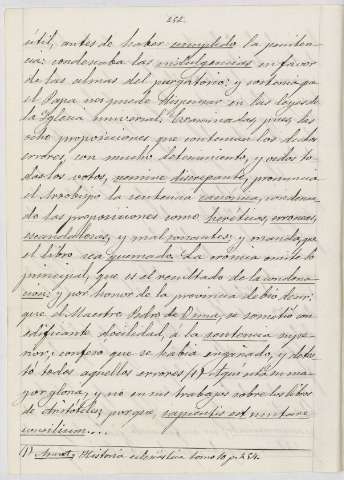 252.
útil, antes de haber cumplido la peniten-
cia: condenaba las indulgencias en favor
de las almas del purgatorio: y sostenia q.e
el Papa no puede dispensar en las leyes de
la Iglesia universal. Examinadas pues, las
ocho proposiciones que contenian los dichos
errores, con mucho detenimiento, y oidos to-
dos los votos, nemine discrepante, pronuncia
el Arzobispo la sentencia canonica, condenan-
do las proposiciones como heréticas, erroneas,
escandalosas, y mal sonantes; y manda que
el libro sea quemado. La crónica omite lo
principal, que es el resultado de la condena-
ción: y por honor de la provincia debió decir:
que el Maestro Pedro de Osma, se sometió con
edificante docilidad, á la sentencia supe-
rior; confesó que se habia engañado, y detes-
tó todos aquellos errores (1) Aquí está su ma-
yor gloria, y no en sus trabajos sobre los libros
de Aristóteles, porque, sapientis est mutare
consilium....
(1) Amat, Historia eclesiástica tomo 10, p. 254.